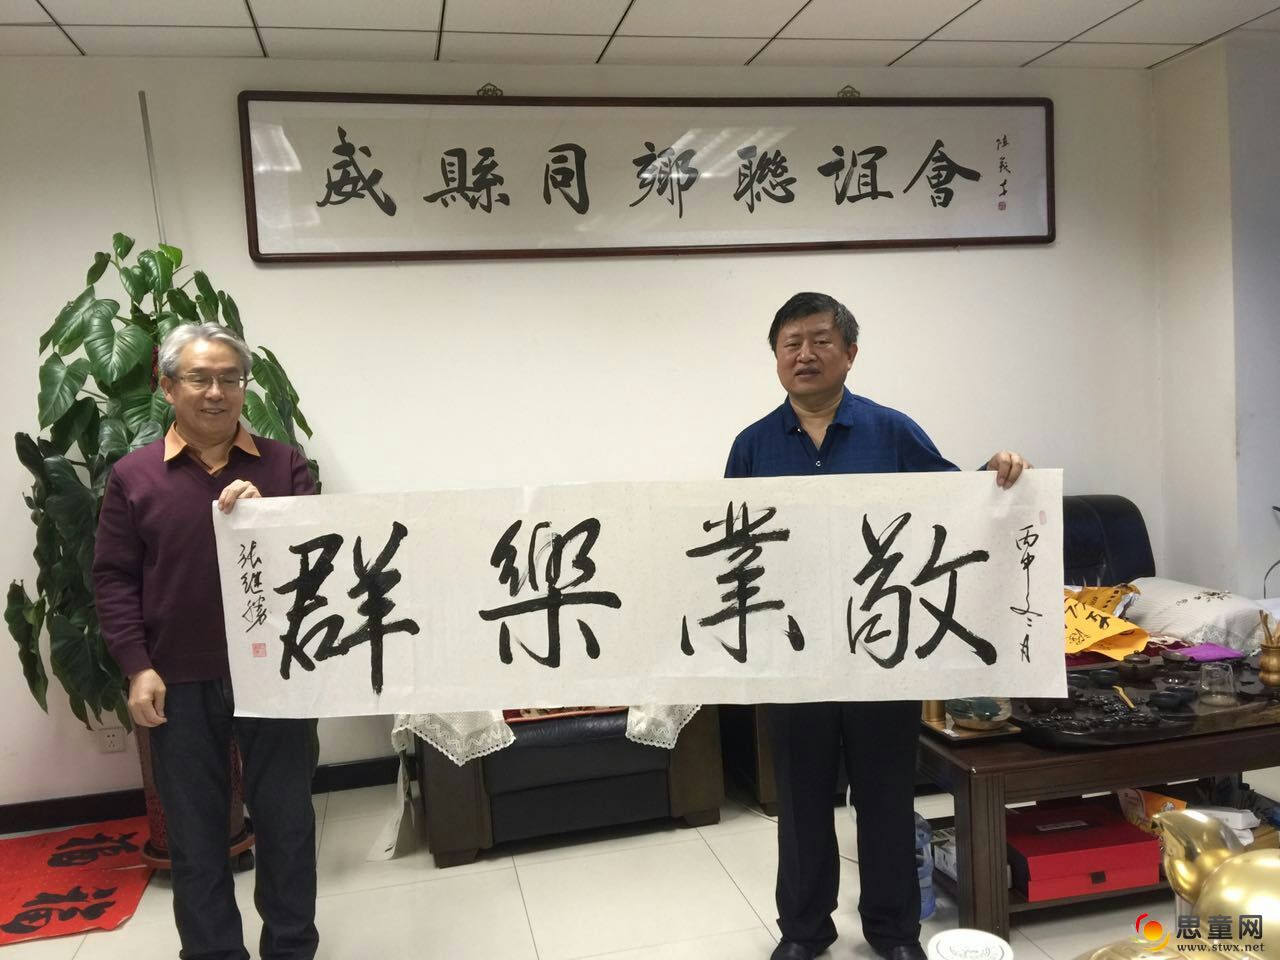 威縣同鄉聯誼會
敬業樂群
丙申冬月
张继勝
福
福
思童网
www.stwx.net